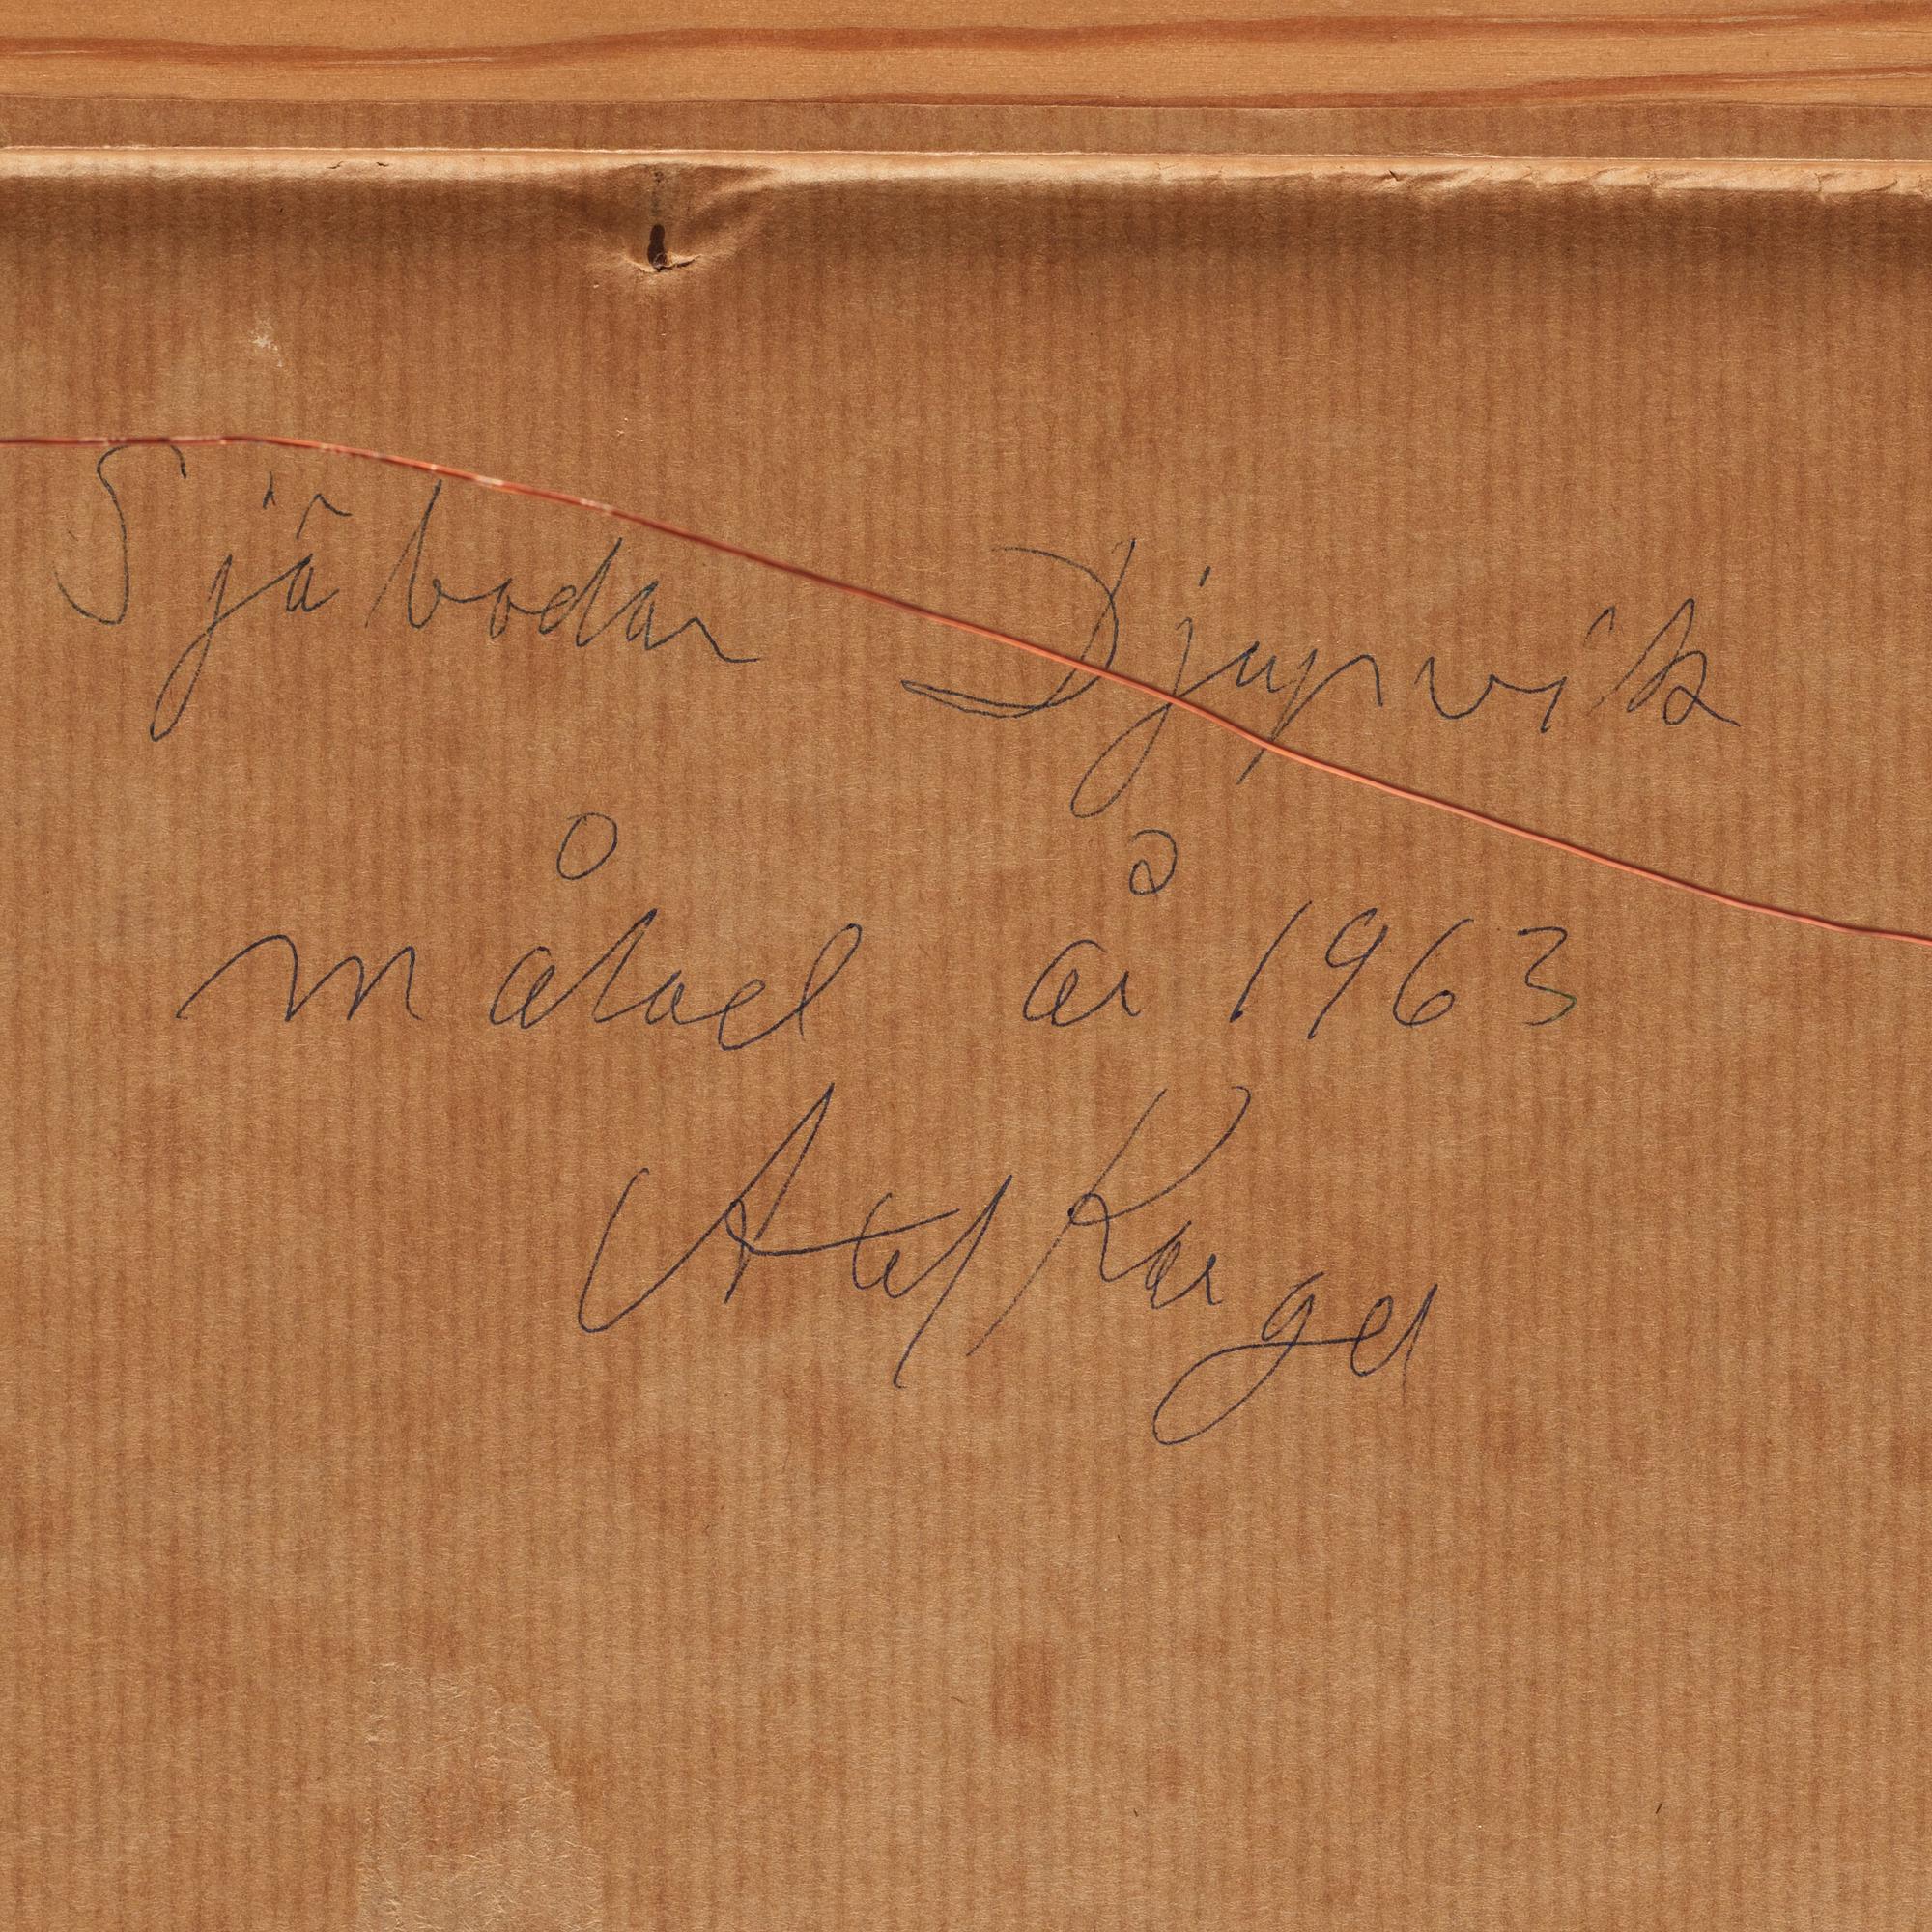 Sjåbodar Djupvik
målad år 1963
Axel Kargel